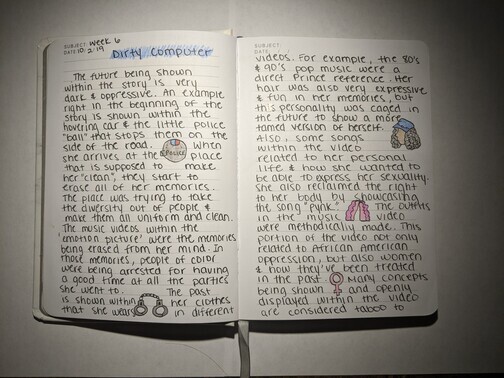 SUBJECT: Week 6
DATE: 10/2/19
Dirty Computer
The future being shown
within the story is very
dark & oppressive. An example
right in the beginning of the
story is shown within the
hovering car & the little police
"ball" that stops them on the
side of the road. When
POLICE
she arrives at the place
that is supposed to make
her "clean", they start to
erase all of her memories.
The place was trying to take
the diversity out of people &
make them all uniform and clean.
The music videos within the
"emotion picture" were the memories
being erased from her mind. In
those memories, people of color
were being arrested for having
a good time at all the parties
she went to. The past
is shown within her clothes
that she wears in different
SUBJECT:
DATE:
videos. For example, the 80's
& 90's pop music were a
direct Prince reference. Her
hair was also very expressive
& fun in her memories, but
this personality was caged in
the future to show a more
tamed version of herself.
Also, some songs
within the video
related to her personal
life & how she wanted to
be able to express her sexuality.
She also reclaimed the right
to her body by showcasing
the song "Pynk". The outfits
in the music video
were methodically made. This
portion of the video not only
related to African American
oppression, but also women
& how they've been treated
in the past. Many concepts
being shown and openly
displayed within the video
are considered taboo to